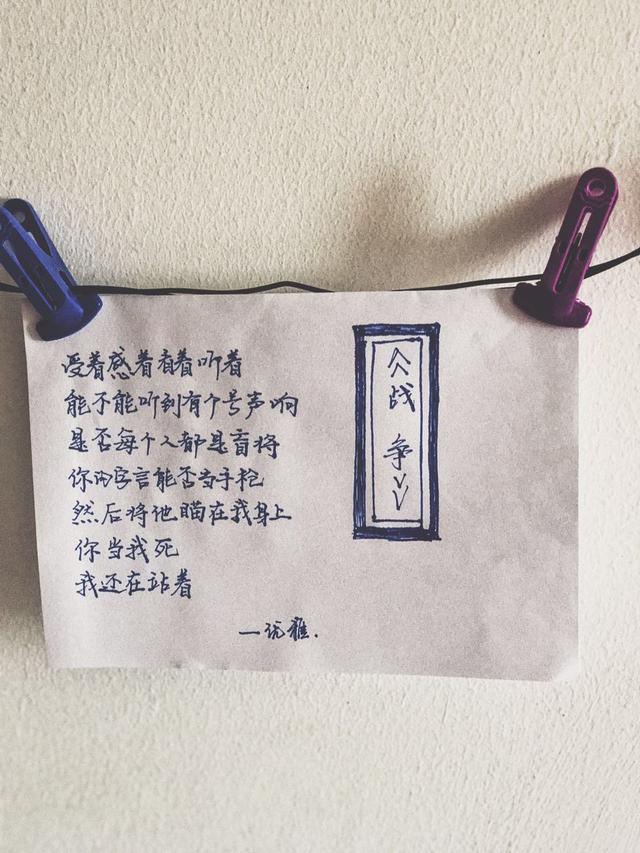 《战争》
受着感着看着听着
能不能听到有个号声响
是否每个人都是盲将
你的字言能否当手枪
然后将他瞄在我身上
你当我死
我还在站着
一优雅.